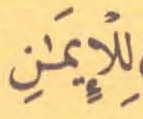 لِلْإِيمَٰنِ